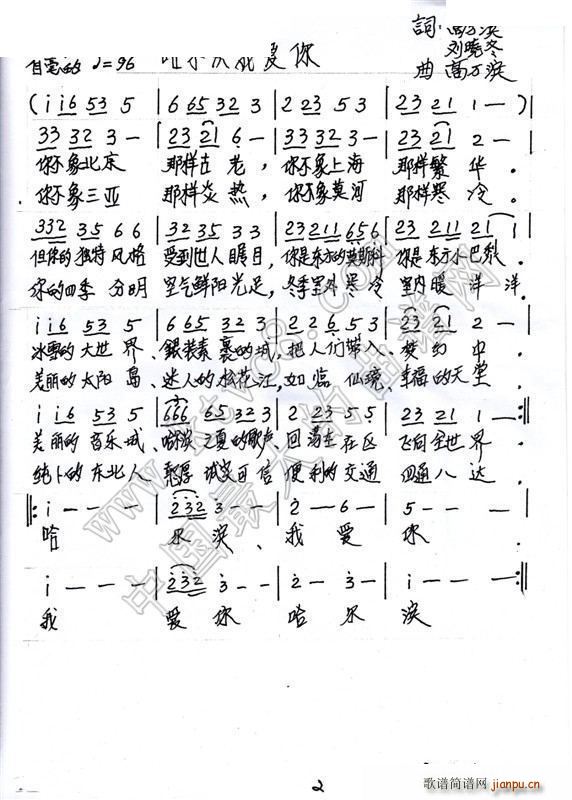 詞:高万滨
刘晓冬
曲 高万滨
自毫的 ♩=96 哈尔滨我爱你
( i i6 53 5 | 6 65 32 3 | 2 23 5 3 | 23 21 1 — )
33 32 3 — | 23 21 6 — | 33 32 3 — | 23 21 2 — |
你不象北京 那样古老, 你不象上海 那样繁华.
你不象三亚 那样炎热, 你不象莫河 那样寒冷.
332 35 6 6 | 32 35 3 3 | 23 211 656 | 23 211 21 |
但你的独特风格 受到世人瞩目, 你是东方的莫斯科 你是东方小巴黎
你的四季 分明 空气鲜阳光足, 冬季室外寒冷 室内暖洋洋.
i i6 53 5 | 6 65 32 3 | 2 2 6 5 3 | 23 21 2 — |
冰雪的大世界、銀装素裹的城, 把人们带入、梦幻中.
美丽的太阳岛、迷人的松花江, 如临仙境、幸福的天堂.
i i6 53 5 | 666 65 32 3 | 2 23 5 5 | 23 21 1 — :‖
美丽的音乐城、哈滨之夏的歌声、回荡在 飞向全世界
纯卜的东北人 憨厚诚实可信 便利的交通 四通八达
‖: i — — — | 232 3 — — | 2 — 6 — | 5 — — — |
哈 尔滨、我爱你
i — — — | 232 3 — — | 2 — 3 — | i — — — :‖
我 爱你 哈尔滨
www.ktvc8.com
中国最大的曲谱网
2
歌谱简谱网
jianpu.cn